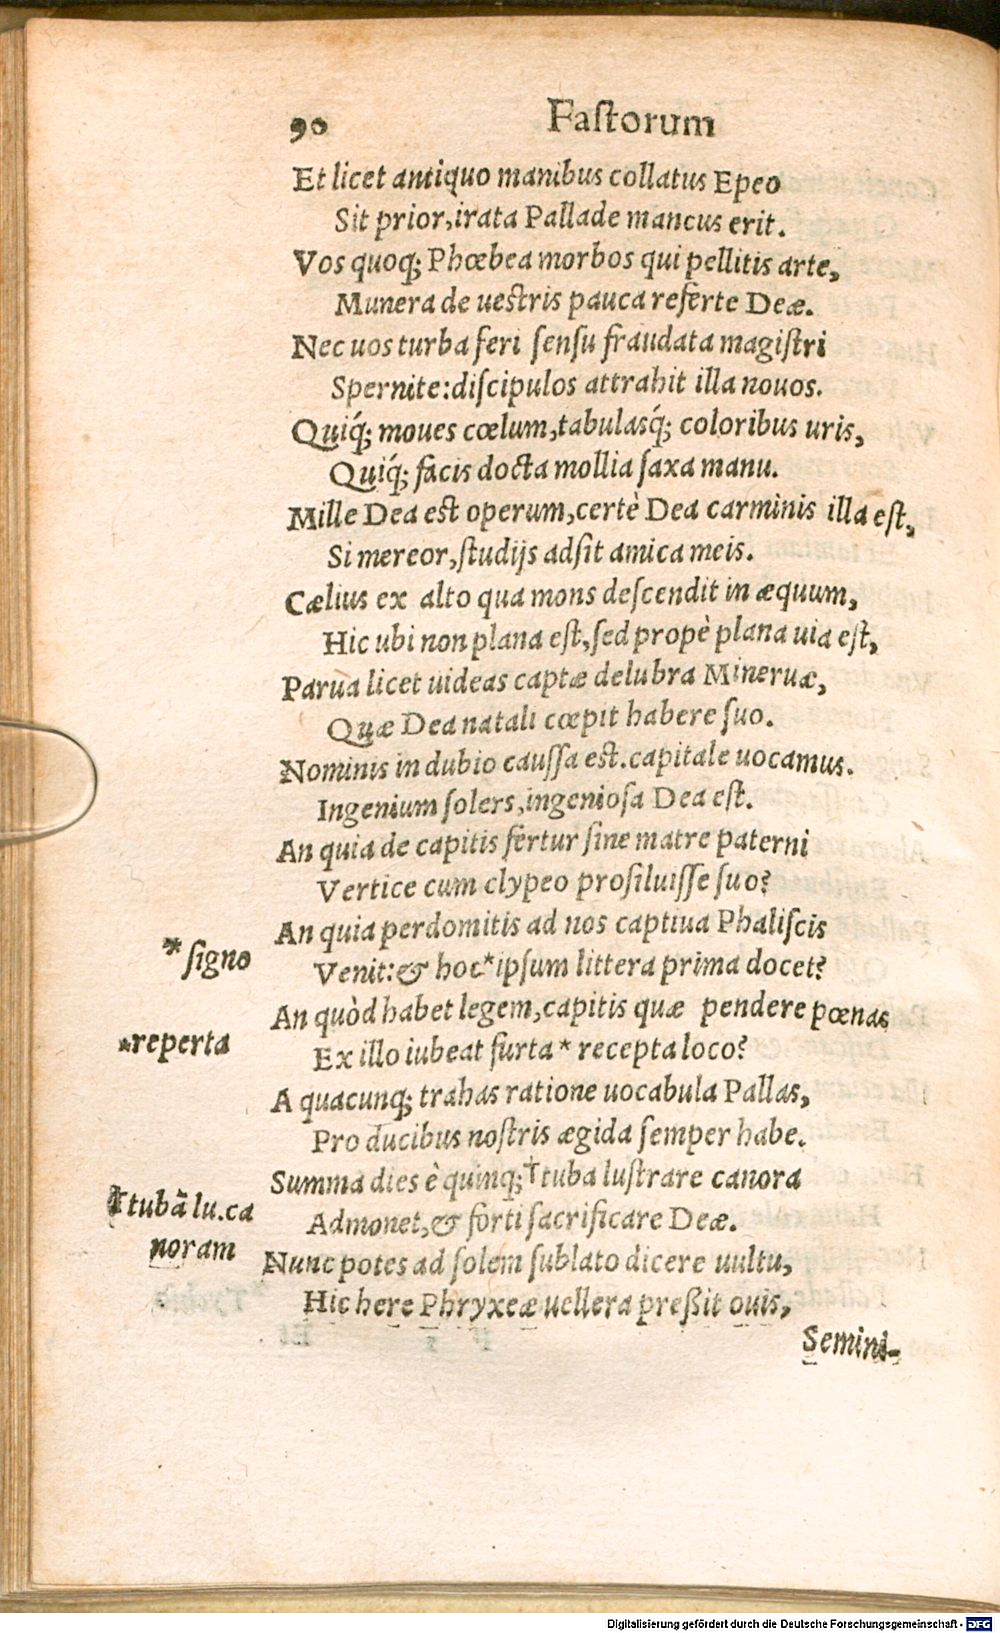 90 Fastorum
Et licet antiquo manibus collatus Epeo
Sit prior, irata Pallade mancus erit.
Vos quoq; Phœbea morbos qui pellitis arte,
Munera de uestris pauca referte Deæ.
Nec uos turba feri sensu fraudata magistri
Spernite: discipulos attrahit illa nouos.
Quiq́; moues cœlum, tabulasq́; coloribus uris,
Quiq́; facis docta mollia saxa manu.
Mille Dea est operum, certè Dea carminis illa est,
Si mereor, studijs adsit amica meis.
Cælius ex alto qua mons descendit in æquum,
Hic ubi non plana est, sed propè plana uia est,
Parua licet uideas captæ delubra Mineruæ,
Quæ Dea natali cœpit habere suo.
Nominis in dubio caussa est. capitale uocamus.
Ingenium solers, ingeniosa Dea est.
An quia de capitis fertur sine matre paterni
Vertice cum clypeo prosiluisse suo?
An quia perdomitis ad nos captiua Phaliscis
* signo
Venit: & hoc* ipsum littera prima docet?
An quòd habet legem, capitis quæ pendere pœnas
* reperta
Ex illo iubeat furta* recepta loco?
A quacunq; trahas ratione uocabula Pallas,
Pro ducibus nostris ægida semper habe.
Summa dies è quinq; † tuba lustrare canora
† tubā lu. ca
Admonet, & forti sacrificare Deæ.
noram
Nunc potes ad solem sublato dicere uultu,
Hic here Phryxeæ uellera preßit ouis,
Semini-
Digitalisierung gefördert durch die Deutsche Forschungsgemeinschaft - DFG